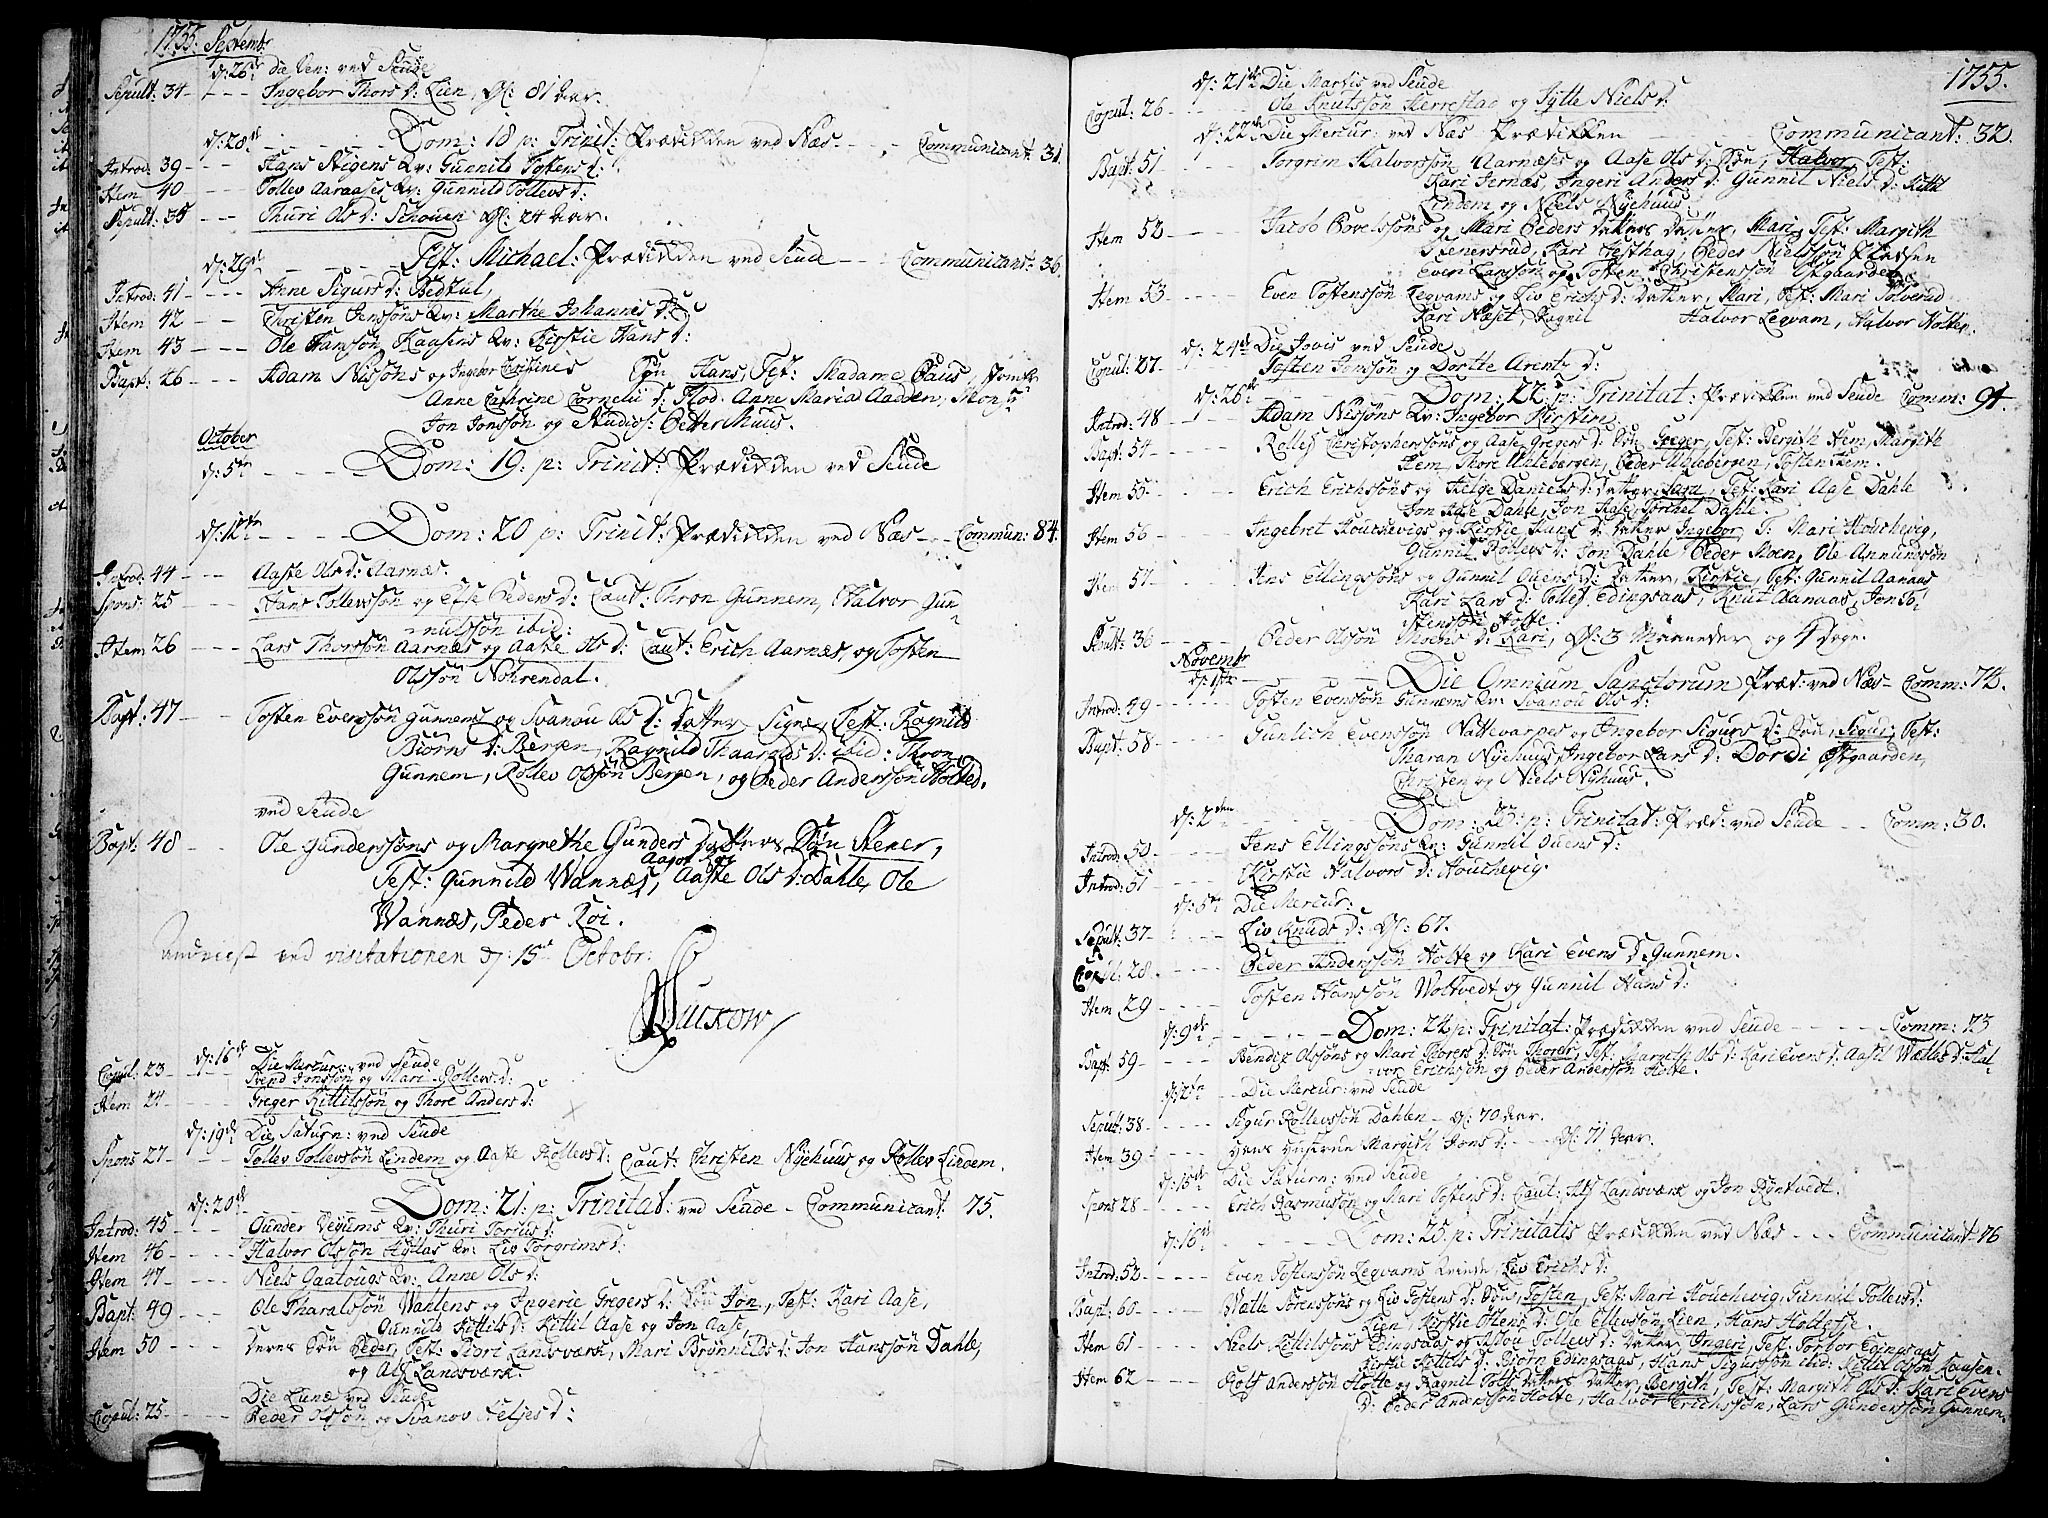 1755. Septemb:
d: 26de die Ven: ved Seude
Sepult: 34 - - - Ingebor Thors d: Lien, Gl: 81 aar.
d: 28de - - - Dom: 18 p: Trinit: Prædikken ved Næs - - - Communicant: 31.
Introd: 39 - - - Hans Stigens Kv: Gunnild Tostens d:
Item 40 - - - Tollev Aaraases Kv: Gunnild Tollevs d:
Sepult: 35 - - - Thuri Ols d: Schouen Gl: 24 aar.
d: 29de - - - Fest: Michael: Prædikken ved Seude - - - Communicans: 36.
Introd: 41 - - - Anne Sigurs d: Bedstul,
Item 42 - - - Christen Jensøns Kv: Marthe Johannis d:
Item 43 - - - Ole Hansøn Kaasens Kv: Kirstie Hans d:
Bapt: 46 - - - Adam Nilsøns og Ingebor Christines Søn Hans, Test: Madame Paus,
Anne Cathrine Cornelii d: Flod. Anne Maria Aadden, Mons:
Jon Jonssøn og Studios: Petter Muus.
October
d: 5te - - - Dom: 19. p: Trinit: Prædikken ved Seude
d: 12te - - - Dom: 20 p: Trinit: Prædikken ved Næs - - - Commun: 84.
Introd: 44 - - - Aaste Ols d: Aarnæs.
Spons: 25 - - - Hans Tollevssøn og Else Peders d: Caut: Thron Gunnem, Halvor Gun-
nulssøn ibid:
Item 26 - - - Lars Thorssøn Aarnæs og Aaste Ols d: Caut: Erich Aarnæs, og Tosten
Olssøn Nohrendal.
Bapt: 47 - - - Tosten Evenssøn Gunnems og Svanou Ols d: Datter Signe, Test: Ragnild
Biørns d: Bergen, Ragnild Thaaralds d: ibid: Thron
Gunnem, Rollev Olssøn Bergen, og Peder Anderssøn Holted.
ved Seude
Bapt: 48 - - - Ole Gunderssøns og Margrethe Gunders Datters Søn Stener,
Test: Gunnild Wannæs, Aagot Roi Aaste Ols d: Dahle, Ole
Wannæs, Peder Roi.
ved visitationen d: 15de Octobr:
Suckow
d: 16de Die Mercur: ved Seude
Copul: 23 - - - Svend Jonssøn og Mari Rollevs d:
Item 24 - - - Greger Kittilssøn og Thore Anders d:
d: 19de Die Saturn: ved Seude
Spons 27 - - - Tollev Tollevsøn Lindem og Aaste Rollevs d: Caut: Christen Nyehuus og Rollev Lindem.
d: 20de - - - Dom: 21. p: Trinitat: ved Seude - Communicant 75.
Introd: 45 - - - Gunder Vejums Kv: Thuri Torjus d:
Item 46 - - - Halvor Olssøn Hyllas Kv: Liv Torgrims d:
Item 47 - - - Niels Gaatougs Kv: Anne Ols d:
Bapt: 49 - - - Ole Tharalssøn Wahlens og Ingerie Gregers d: Søn Jon, Test: Kari Aase,
Gunnild Kittils d: Kittil Aase og Jon Aase,
Item 50 - - - Deres Søn Peder, Test: Siori Landsværk, Mari Brønnilds d: Jon Hanssøn Dahle,
og Alf Landsværk.
Die Lunæ ved Seude
Copul: 25 - - - Peder Olssøn og Svanov Heljes d:
1755.
d: 21de Die Martis ved Seude
Copul: 26 - - - Ole Knutssøn Herrestad og Sytte Niels d:
d: 22de Die Mercur: ved Næs Prædikken - - - Communicant: 32.
Bapt: 51 - - - Torgrim Halvorssøn Aarnæses og Aase Ols d: Søn, Halvor, Test:
Kari Jernæs, Ingeri Anders d: Gunnil Niels d: Kittil
Lindem og Niels Nyehuus.
Item 52 - - - Jacob Povelssøns og Mari Peders Datters Datter, Mari, Test: Margith
Stenersrud, Kari Hesthag, Peder Nielssøn Pladsen
Even Larssøn og Tosten Christenssøn Østgaarden
Item 53 - - - Even Tostenssøn Legvams og Liv Erichs d: Datter, Mari, Test: Mari Solverud
Kari Næset, Ragnil Halvor Legvam, Halvor Holten.
d: 24de Die Jovis ved Seude
Copul: 27 - - - Tosten Jonssøn og Dortte Arent d:
d: 26de - - - Dom: 22. p: Trinitat: Prædikken ved Seude Comm: 94.
Introd: 48 - - - Adam Nilsøns Kv: Ingebor Kirstin
Bapt: 54 - - - Rollef Christopherssøns og Aase Gregers d: Søn Greger, Test: Bergith Hem, Margith
Hem, Thore Uhlebergen, Peder Uhlebergen, Tosten Hem.
Item 55 - - - Erich Erichssøns og Helge Daniels d: Datter, Sara, Test: Kari Aase Dahle
Jon Aase Dahle, Jon Aase, Torchel Dahle.
Item 56 - - - Ingebret Houchevigs og Kirstie Hans d: Datter Ingebor, T: Mari Houchevig,
Gunnil Rollevs d: Jon Dahle Peder Moen, Ole Anmundssøn
Item 57 - - - Jens Ellingssøns og Gunnil Ouens d: Datter, Kirstie, Test: Gunnil Aanaas
Kari Lars d: Tollef Edingsaas, Knut Aanaas, Jon To-
stenssøn Holte.
Sepult: 36 - - - Peder Olssøn Moens d: Kari, Gl: 3 Maaneder og 4 Dage.
Novembr
d: 1ste - - - Die Omnium Sanctorum Præd: ved Næs - Comm: 74.
Introd: 49 - - - Tosten Evenssøn Gunnems Kv: Svanou Ols d:
Bapt: 58 - - - Gunlich Evenssøn Nattevarpes og Ingebor Sigurs d: Søn, Sigur, Test:
Tharan Nyehuus, Ingebor Lars d: Dordi Østgaarden,
Christen og Niels Nyhuus.
d: 2den - - - Dom: 23. p: Trinitat: Præd: ved Seude - - Comm: 30.
Introd: 50 - - - Jens Ellingssøns Kv: Gunnil Ouens d:
Introd: 51 - - - Kirstie Halvors d: Houchevig.
d: 5te Die Mercur:
Sepult: 37 - - - Liv Knuds d: Gl: 67.
Copul: 28 - - - Peder Anderssøn Holte og Kari Evens d: Gunnem.
Item 29 - - - Tosten Hanssøn Woltvedt og Gunnil Hans d:
d: 9de - - - Dom: 24 p: Trinitat: Prædikken ved Seude - - - Comm: 23
Bapt: 59 - - - Bendix Olssøns og Mari Thorers d: Søn Thorer, Test: Margith Ols d: Kari Evens d: Aase Wætles d: Hal-
vor Erichssøn og Peder Anderssøn Holte.
d: 12te - - Die Mercur: ved Seude
Sepult: 38 - - - Sigur Rollevssøn Dahlen - Gl: 70 aar.
Item 39 - - - hans Hustrue Margith Jons d: - - Gl: 71 aar.
d: 15de Die Saturn: ved Seude
Spons 28 - - - Erich Rasmussøn og Mari Tostens d: Caut: Alf Landsværk og Jon Røntvedt.
d: 16de - - - Dom: 25. p: Trinitatis Prædikken ved Næs - - - Communicant: 76
Introd: 52 - - - Even Tostenssøn Legvams Kvinde, Liv Erichs d:
Bapt: 60 - - - Wætle Sørenssøns og Liv Tostens d: Søn, Tosten, Test: Mari Houchevig, Gunnil Tollevs d:
Lien, Kirstie Ostens d: Ole Ellevssøn Lien, Hans Holtefie.
Item 61 - - - Niels Kittilssøns Edingsaas og Aslou Tollevs d: Datter Ingeri, Test: Torbor Edingsaas
Kirstie Kittils d: Biørn Edingsaas, Hans Sigurssøn ibid: Kittil Olssøn Kaasen.
Item 62 - - - Rolf Anderssøn Holte og Ragnil Tolfs Datters Datter, Bergith, Test: Margith Ols d: Kari Evens
d: Peder Anderssøn Holte, Halvor Erichssøn, Lars Gunderssøn Gunnem.